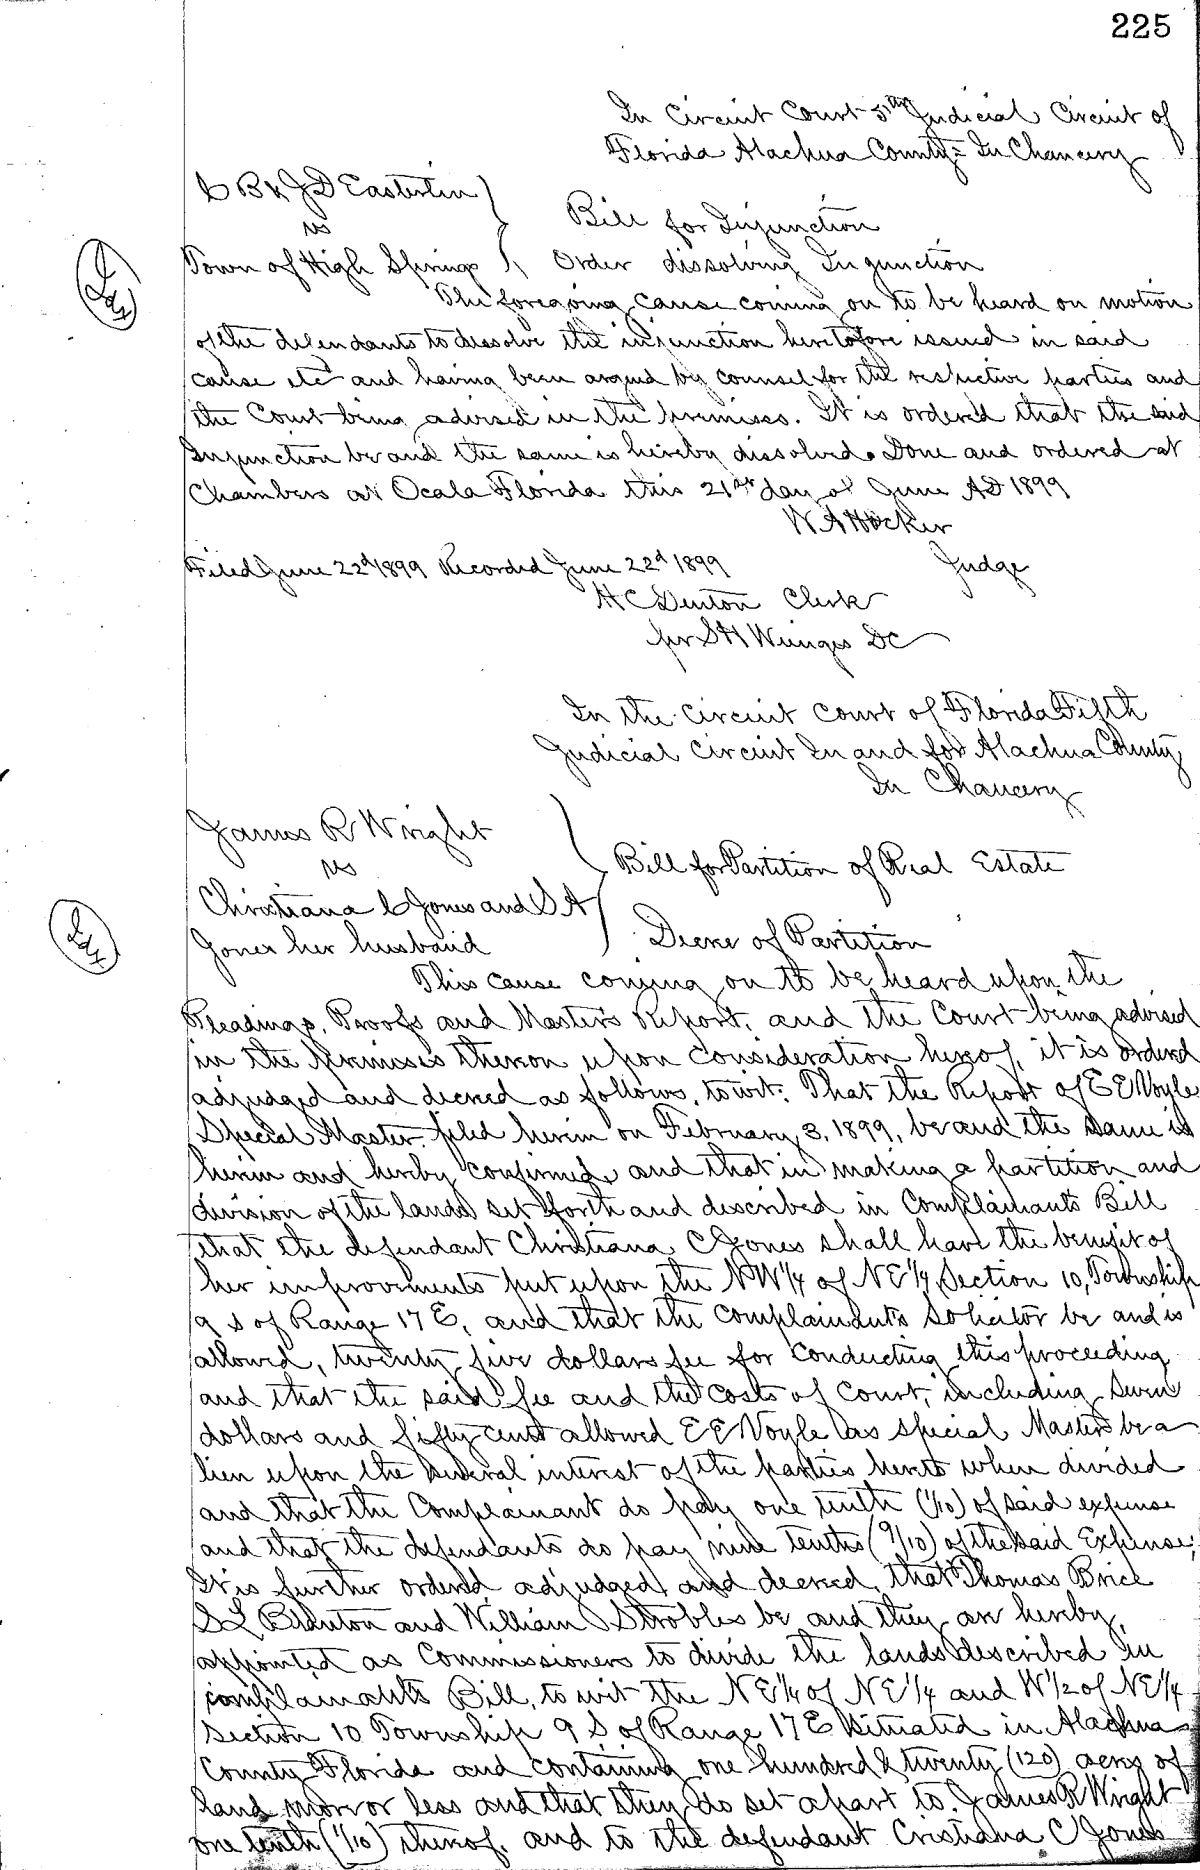 225
In Circuit Court 5th Judicial Circuit of
Florida Alachua County In Chancery
C B & J D Easterlin
vs
Bill for Injunction
Town of High Springs
Order dissolving Injunction
The foregoing cause coming on to be heard on motion
of the defendants to dissolve the injunction heretofore issued in said
cause etc and having been argued by counsel for the respective parties and
the Court being advised in the premises. It is ordered that the said
Injunction be and the same is hereby dissolved. Done and ordered at
Chambers at Ocala Florida this 21st day of June AD 1899
W A Hocker
Judge
Filed June 22d 1899 Recorded June 22d 1899
H C Denton Clerk
per S H Wienges DC
In the Circuit Court of Florida Fifth
Judicial Circuit In and for Alachua County
In Chancery
James R Wright
vs
Bill for Partition of Real Estate
Christiana C Jones and S A
Jones her husband
Decree of Partition
This cause coming on to be heard upon the
Pleadings, Proofs and Masters Report, and the Court being advised
in the premises thereon upon consideration hereof, it is ordered
adjudged and decreed as follows, towit: That the Report of E E Voyle
Special Master filed herein on February 3, 1899, be and the same is
herein and hereby confirmed, and that in making a partition and
division of the lands set forth and described in Complainants Bill
that the defendant Christiana C Jones shall have the benefit of
her improvements put upon the NW 1/4 of NE 1/4 Section 10, Township
9 S of Range 17 E, and that the complainants Solicitor be and is
allowed, twenty five dollars fee for conducting this proceeding
and that the said fee and the costs of Court, including seven
dollars and fifty cents allowed E E Voyle as special Master be a
lien upon the several interest of the parties hereto when divided
and that the Complainant do pay one tenth (1/10) of said expense
and that the defendants do pay nine tenths (9/10) of the said Expense,
It is further ordered adjudged and decreed, that Thomas Brice
S L Blanton and William S Strobles be and they are hereby
appointed as Commissioners to divide the lands described in
complainants Bill, to wit the NE 1/4 of NE 1/4 and W 1/2 of NE 1/4
Section 10 Township 9 S of Range 17 E situated in Alachua
County Florida and containing one hundred & twenty (120) acres of
land more or less and that they do set apart to James R Wright
one tenth (1/10) thereof, and to the defendant Cristiana C Jones